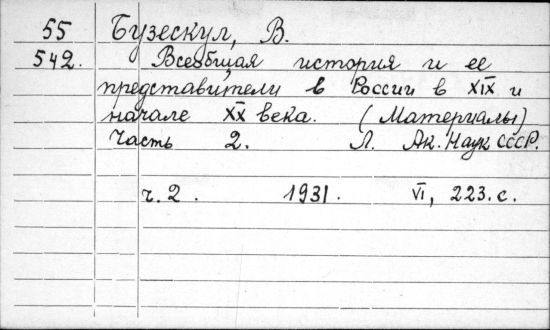 55 Бузескул, В.
542. Всеобщая история и ее
представители в России в XIX и
начале XX века. (Материалы)
Часть 2. Л. Ак. Наук СССР.
ч. 2. 1931. VI, 223. с.